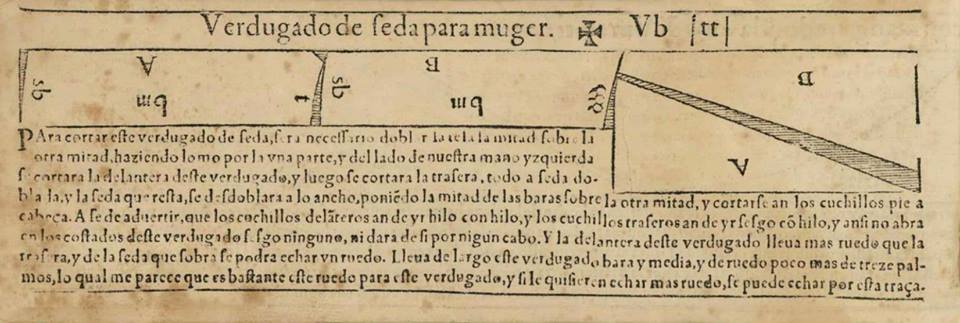 Verdugado de seda para muger. ✠ Vb |tt|
A B B
sb bmq t sb bmq A
PAra cortar este verdugado de seda, sera necessario doblar la tela la mitad sobre la
otra mitad, haziendo lomo por la vna parte, y del lado de nuestra mano yzquierda
se cortara la delantera deste verdugado, y luego se cortara la trasera, todo a seda do-
blada, y la seda que resta, se desdoblara a lo ancho, poniẽdo la mitad de las baras sobre la otra mitad, y cortarse an los cuchillos pie a
cabeça. A se de aduertir, que los cuchillos delãteros an de yr hilo con hilo, y los cuchillos traseros an de yr sesgo cõ hilo, y ansi no abra
en los costados deste verdugado sesgo ninguno, ni dara de si por nigun cabo. Y la delantera deste verdugado lleua mas ruedo que la
trasera, y de la seda que sobra se podra echar vn ruedo. Lleua de largo este verdugado bara y media, y de ruedo poco mas de treze pal-
mos, lo qual me parece que es bastante este ruedo para este verdugado, y si le quisieren echar mas ruedo, se puede echar por esta traça.